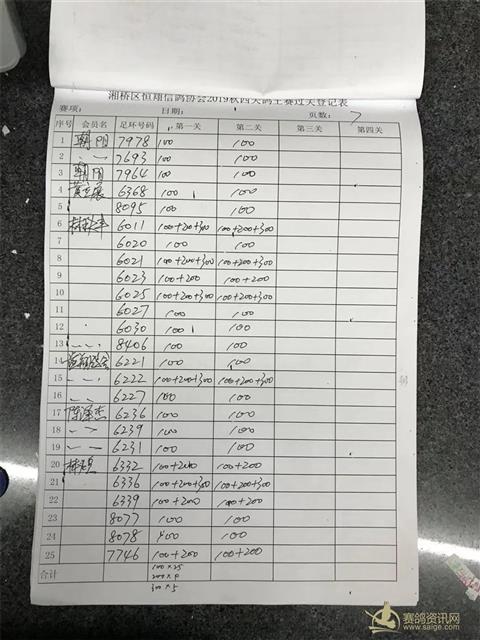 湘桥区恒翔信鸽协会2019秋四关鸽王赛过关登记表
赛项: 日期: 页数: 7
序号 会员名 足环号码 第一关 第二关 第三关 第四关
1 朝阳 7978 100 100
2 7693 100 100
3 朝阳 7964 100 100
4 6368 100 100
5 8095 100 100
6 6011 100+200+300 100+200+300
7 6020 100 100
8 6021 100+200+300 100+200+300
9 6023 100+200 100+200
10 6025 100+200+300 100+200+300
11 6027 100 100
12 6030 100 100
13 8406 100 100
14 6221 100 100
15 6222 100+200+300 100+200+300
16 6227 100 100
17 陈泽杰 6236 100 100
18 6239 100 100
19 6231 100 100
20 6332 100+200 100+200
21 6336 100+200+300 100+200+300
22 6339 100+200 100+200
23 8077 100 100
24 8078 100 100
25 7746 100+200 100+200
合计 100×25
300×5
赛鸽资讯网
www.saige.com